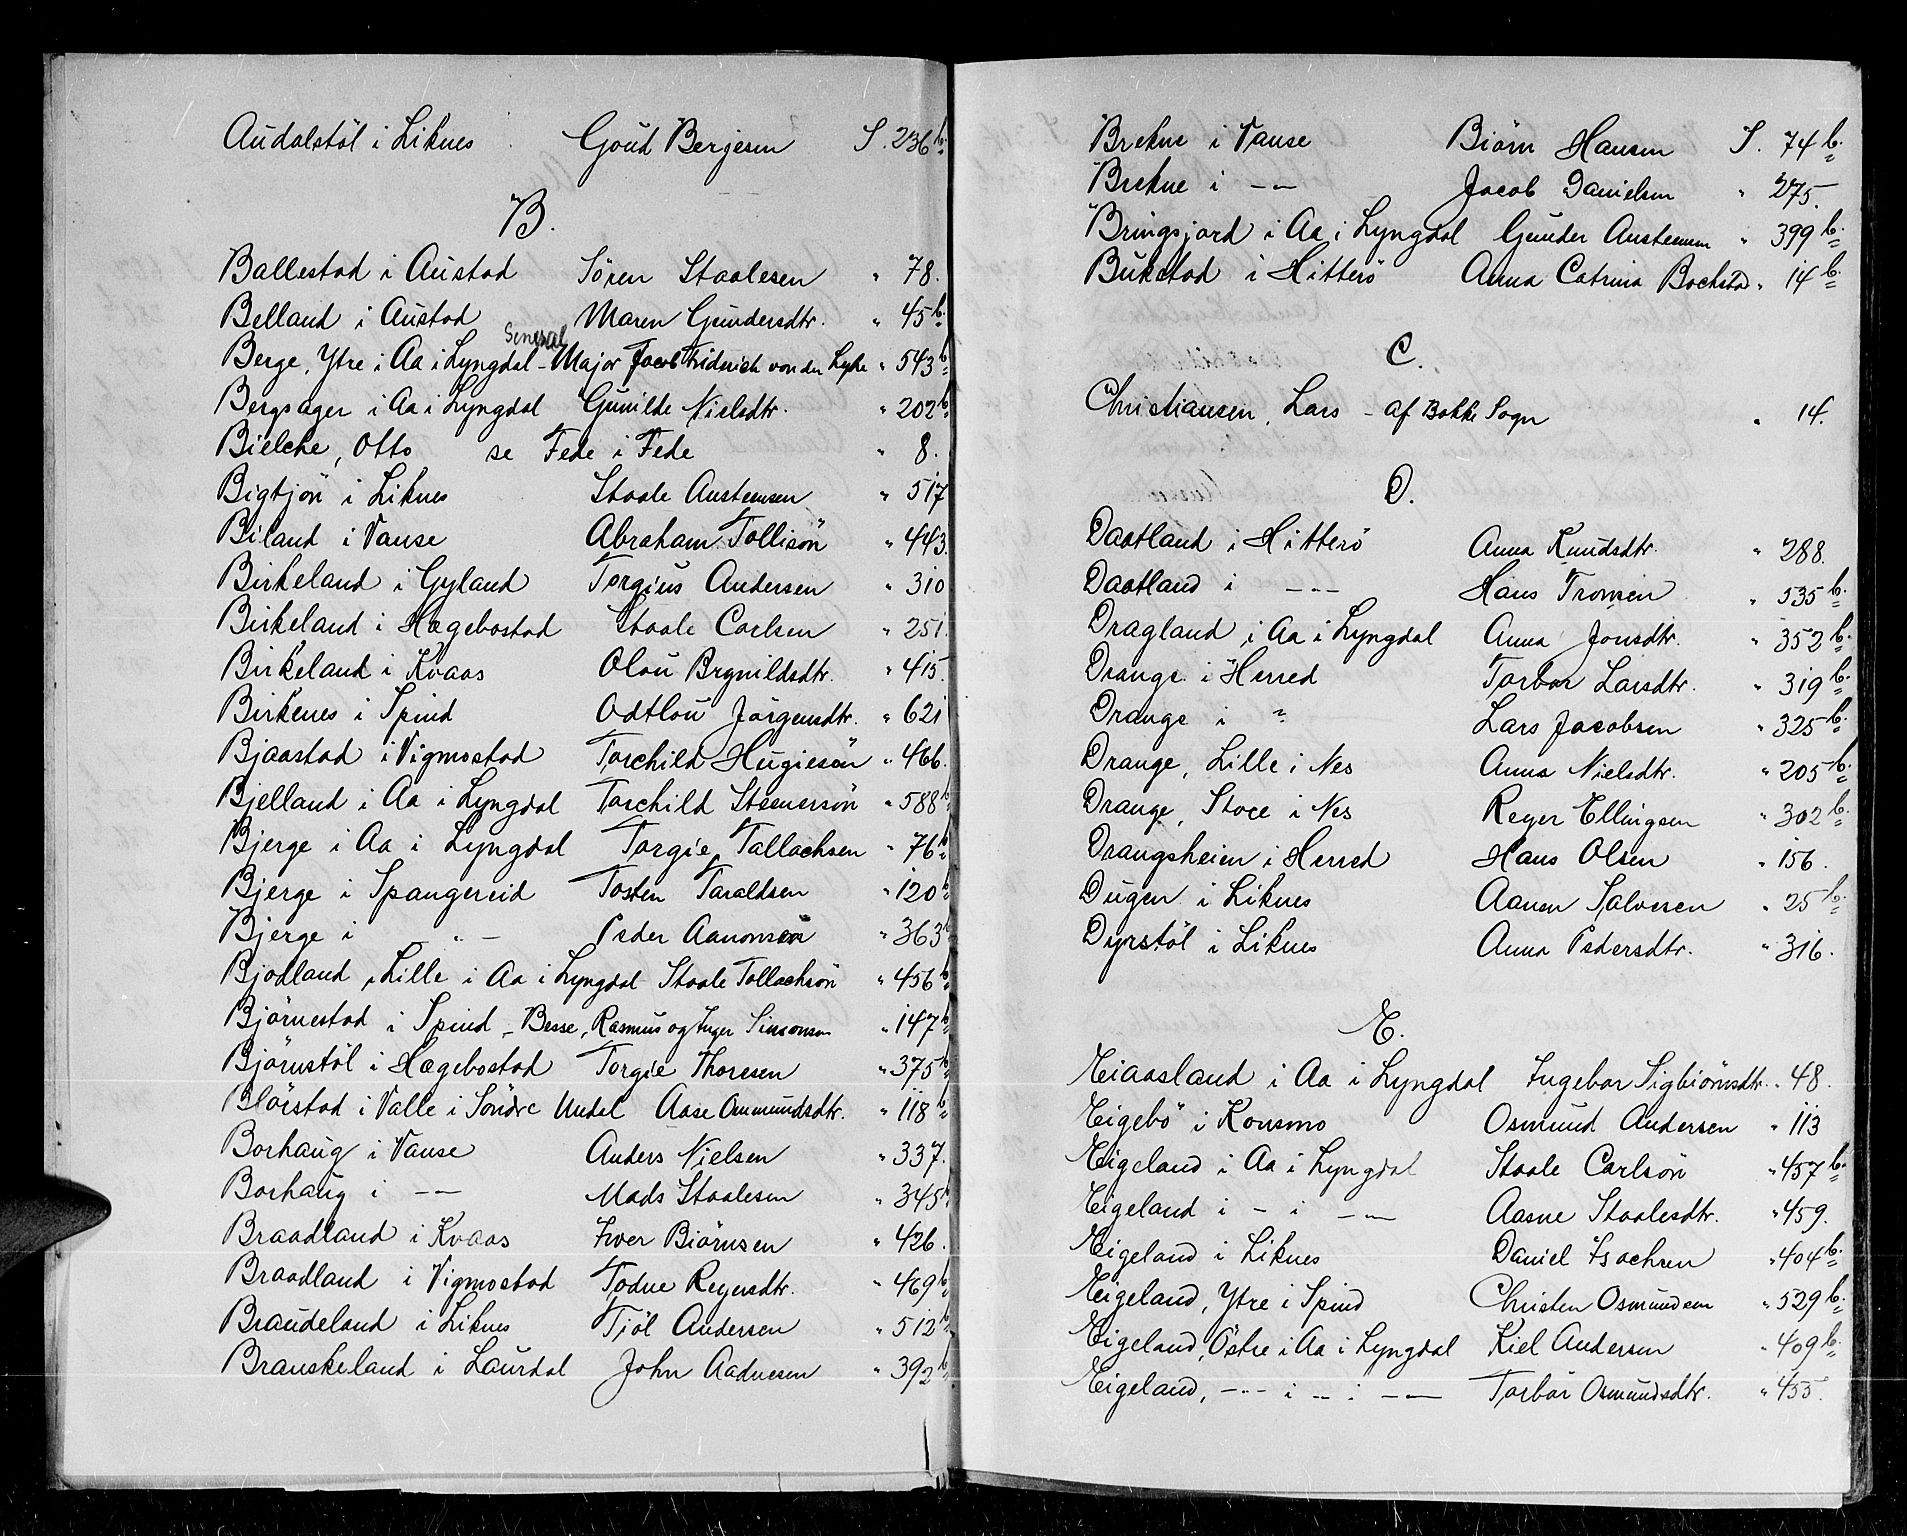 Audalstöl i Liknes Goud Bergesen S. 236 b.
B.
Ballestad i Austad Sören Staalesen " 78.
Belland i Austad Maren Gundersdtr. " 45 b.
General
Berge, Ytre i Aa i Lyngdal - Major Jacob Friderich von der Lyhe " 543 b
Bergsager i Aa i Lyngdal Gunilde Nielsdtr. " 202 b
Bielche, Otto se Fede i Fede " 8.
Bigtjön i Liknes Staale Austensen " 517
Biland i Vanse Abraham Tollisön " 443.
Birkeland i Gyland Torgius Andersen " 310
Birkeland i Hægebostad Staale Carlsen " 251.
Birkeland i Kvaas Olou Brynildsdtr. " 415.
Birkenes i Spind Odtlou Jörgensdtr. " 621
Bjaastad i Vigmostad Torchild Hugiesön " 466.
Bjelland i Aa i Lyngdal Torchild Steenersön " 588 b
Bjerge i Aa i Lyngdal Torgie Tallachsen " 76 b
Bjerge i Spangereid Tosten Taraldsen " 120 b
Bjerge i - " - Peder Aanonsen " 363 b
Bjodland, Lille i Aa i Lyngdal Staale Tollachsön " 456 b
Björnestad i Spind - Besse, Rasmus og Inger Simonsen " 147 b
Björnstöl i Hægebostad Torgie Thoresen " 375 b
Blörstad i Valle i Söndre Undal Aase Osmundsdtr. " 118 b
Borhaug i Vanse Anders Nielsen " 337.
Borhaug i - - Mads Staalesen " 345 b
Braadland i Kvaas Iver Biörnsen " 426.
Braadland i Vigmostad Todne Reyersdtr. " 469 b
Braudeland i Liknes Tjöl Andersen " 512 b
Branskeland i Laurdal John Aadnesen " 392 b
Brekne i Vanse Biörn Hansen S. 74 b.
Brekne i - - Jacob Danielsen " 275.
Bringsjord i Aa i Lyngdal Gunder Austensen " 399 b.
Bukstad i Hitterö Anna Catrina Bochstad " 14 b.
C.
Christiansen, Lars - af Bakke Sogn " 14.
D.
Daatland i Hitterö Anna Knudsdtr. " 288.
Daatland i - - - Hans Tronsen " 535 b.
Dragland i Aa i Lyngdal Anna Jonsdtr. " 352 b.
Drange i Herred Torbor Larsdtr. " 319 b.
Drange i " Lars Jacobsen " 325 b.
Drange, Lille i Nes Anna Nielsdtr. " 205 b.
Drange, Store i Nes Reyer Ellingsen " 302 b.
Drangsheien i Herred Hans Olsen " 156.
Dugen i Liknes Aanen Salvesen " 25 b.
Dyrstöl i Liknes Anna Pedersdtr. " 316.
E.
Eiaasland i Aa i Lyngdal Ingebor Sigbiörnsdtr. " 48.
Eigebö i Konsmo Osmund Andersen " 113
Eigeland i Aa i Lyngdal Staale Carlsön " 457 b.
Eigeland i - i - - Aasne Staalesdtr. " 459.
Eigeland i Liknes Daniel Isachsen " 404 b.
Eigeland, Ytre i Spind Christen Osmundsen " 529 b.
Eigeland, Östre i Aa i Lyngdal Kiel Andersen " 409 b.
Eigeland, - - - i - - i - - Torbör Osmundsdtr. " 455.